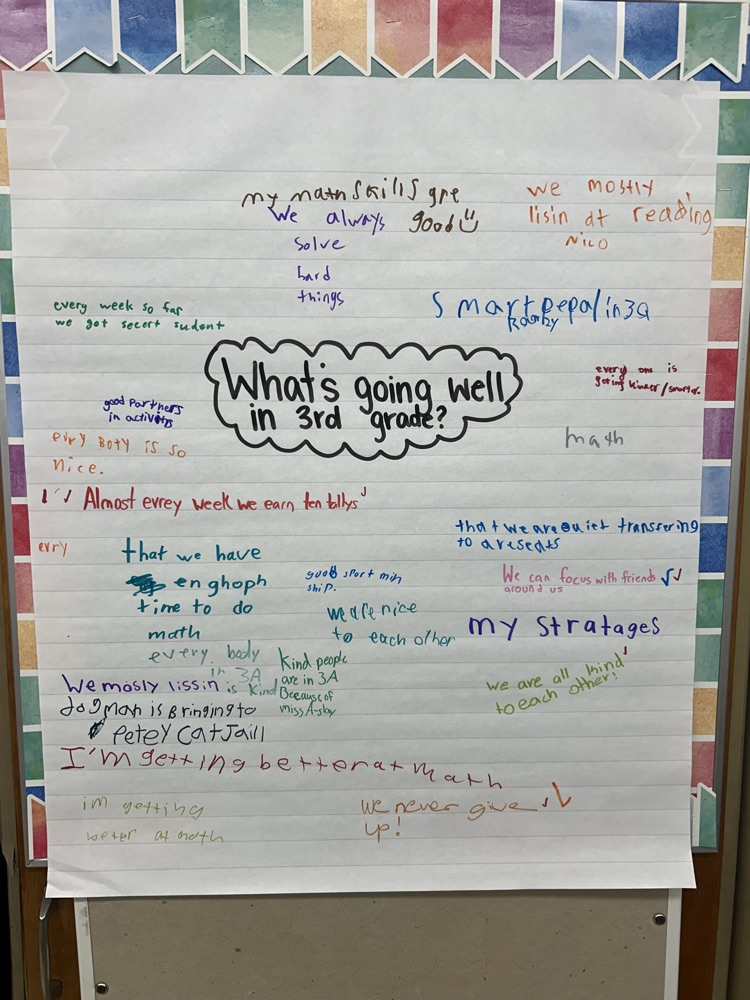 my math skills are
good
We always
solve
hard
things
we mostly
lisin at reading
Nico
every week so far
we got secert sudent
Smart pepal in 3a
What's going well
in 3rd grade?
every one is
geting kinder/smarter.
good Partners
in activitys
evry Boty is so
nice.
math
Almost evrey week we earn ten tallys
that we are quiet transfering
to a reseats
evry
that we have
enghoph
time to do
math
good sport min
ship.
We can focus with friends
around us
we are nice
to each other
my Stratages
every body
in 3A
is kind
Kind people
are in 3A
Beeause of
miss A-slay
we are all kind
to each other!
We mosly lissin
dogman is Bringing to
Petey Cat Jaill
I'm getting better at math
im getting
better at math
we never give
up!